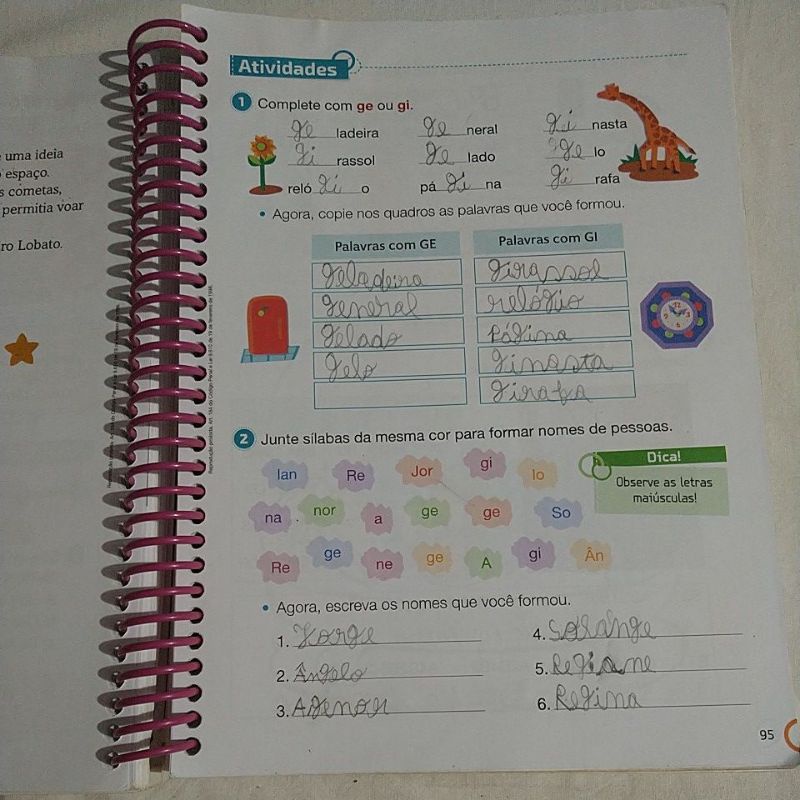 e uma ideia
espaço.
s cometas,
permitia voar
ro Lobato.
Atividades
1 Complete com ge ou gi.
ge ladeira ge neral gi nasta
gi rassol ge lado ge lo
reló gi o pá gi na gi rafa
• Agora, copie nos quadros as palavras que você formou.
Palavras com GE Palavras com GI
geladeira girassol
general relógio
gelado página
gelo ginasta
girafa
2 Junte sílabas da mesma cor para formar nomes de pessoas.
lan Re Jor gi lo
na nor a ge ge So
Re ge ne ge A gi Ân
Dica!
Observe as letras
maiúsculas!
• Agora, escreva os nomes que você formou.
1. Jorge 4. Solange
2. Ângelo 5. Regiane
3. Agenor 6. Regina
95